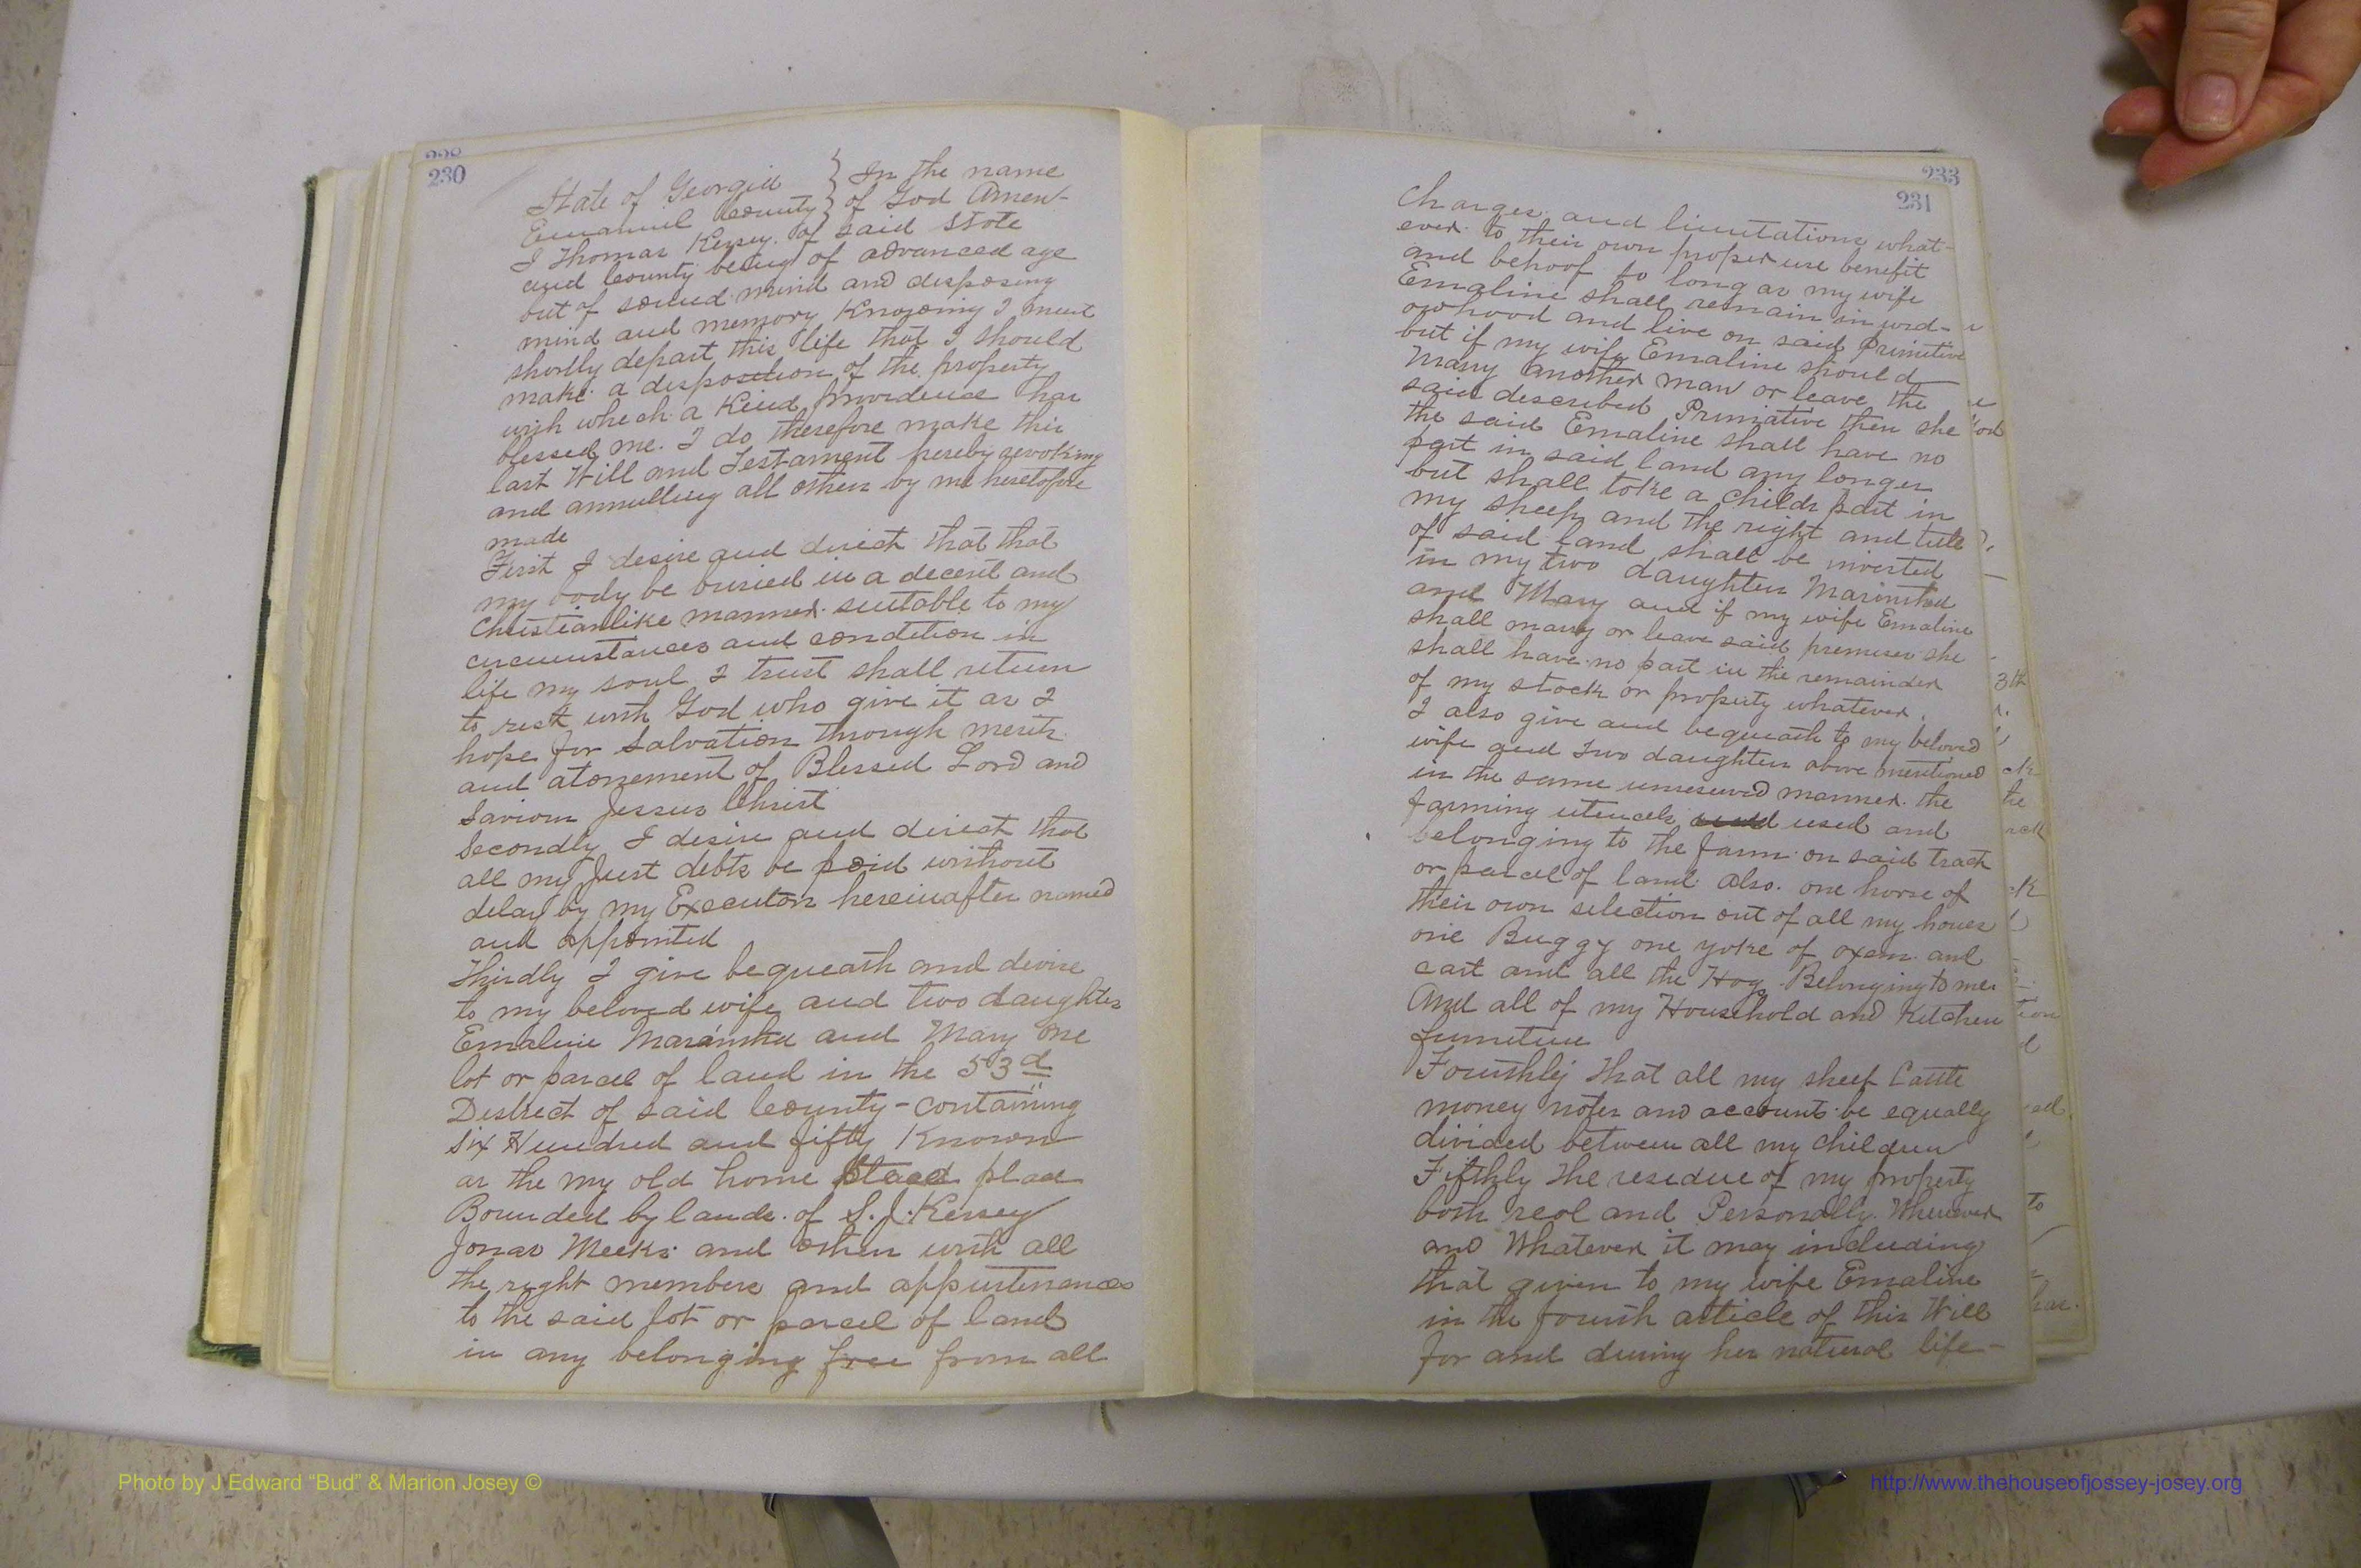 230
State of Georgia } In the name
Emanuel County } of God Amen-
I Thomas Kersey. of said State
and County being of advanced age
but of sound mind and disposing
mind and memory Knowing I must
shortly depart this life that I should
make a disposition of the property
with which a Kind providence has
blessed me. I do therefore make this
last Will and Testament hereby revoking
and annulling all others by me heretofore
made
First I desire and direct that that
my body be buried in a decent and
Christianlike manner suitable to my
circumstances and condition in
life my soul I trust shall return
to rest with God who give it as I
hope for Salvation through merits
and atonement of Blessed Lord and
Saviour Jessus Christ
Secondly I desire and direct that
all my Just debts be paid without
delay by my Executors hereinafter named
and appointed
Thirdly I give bequeath and devise
to my beloved wife and two daughters
Emaline and Mary one
lot or parcel of land in the 53d
District of said County - containing
Six Hundred and fifty Known
as the my old home place
Bounded by lands of S. J. Kersey
Jonas Meeks and others with all
the right members and appurtenances
to the said lot or parcel of land
in any belonging free from all
233
231
Charges and limitations what-
ever to their own proper use benefit
and behoof to long as my wife
Emaline shall remain in wid-
owhood and live on said Primitive
but if my wife Emaline should
Marry another man or leave the
said described Primative then she
the said Emaline shall have no
part in said land any longer
but shall take a Childs part in
my sheep and the right and title
of said land shall be invested
in my two daughters
and Mary and if my wife Emaline
shall marry or leave said premises she
shall have no part in the remainder
of my stock or property whatever.
I also give and bequeath to my beloved
wife and two daughters above mentioned
in the same unreserved manner the
farming utencels used and
belonging to the farm on said tract
or parcel of land also. one horse of
their own selection out of all my horses
one Buggy one yoke of oxen and
cart and all the Hogs Belonging to me
And all of my Household and Kitchen
furniture
Fourthly that all my sheep Cattle
money notes and accounts be equally
divided between all my children
Fifthly the residue of my property
both real and Personally Wherever
and Whatever it may including
that given to my wife Emaline
in the fourth article of this Will
for and during her natural life-
Photo by J Edward “Bud” & Marion Josey ©
http://www.thehouseofjossey-josey.org